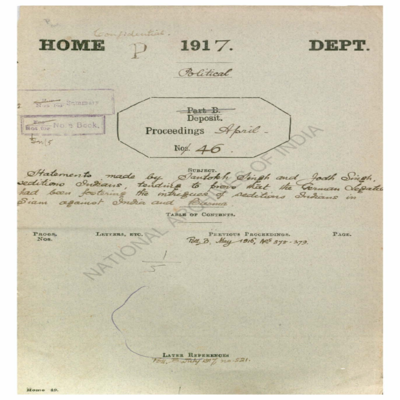 Confidential.
HOME P 1917. DEPT.
Political
Part B.
Deposit.
Proceedings April.
No. 46.
SUBJECT.
Statements made by Santokh Singh and Jodh Singh,
seditious Indians, tending to prove that the German
had been fostering the intrigues of seditious Indians in
Siam against India and Burma
TABLE OF CONTENTS.
PROGS. NOS. LETTERS, ETC. PREVIOUS PROCEEDINGS. PAGE.
May 1916,
LATER REFERENCES
NATIONAL ARCHIVES OF INDIA